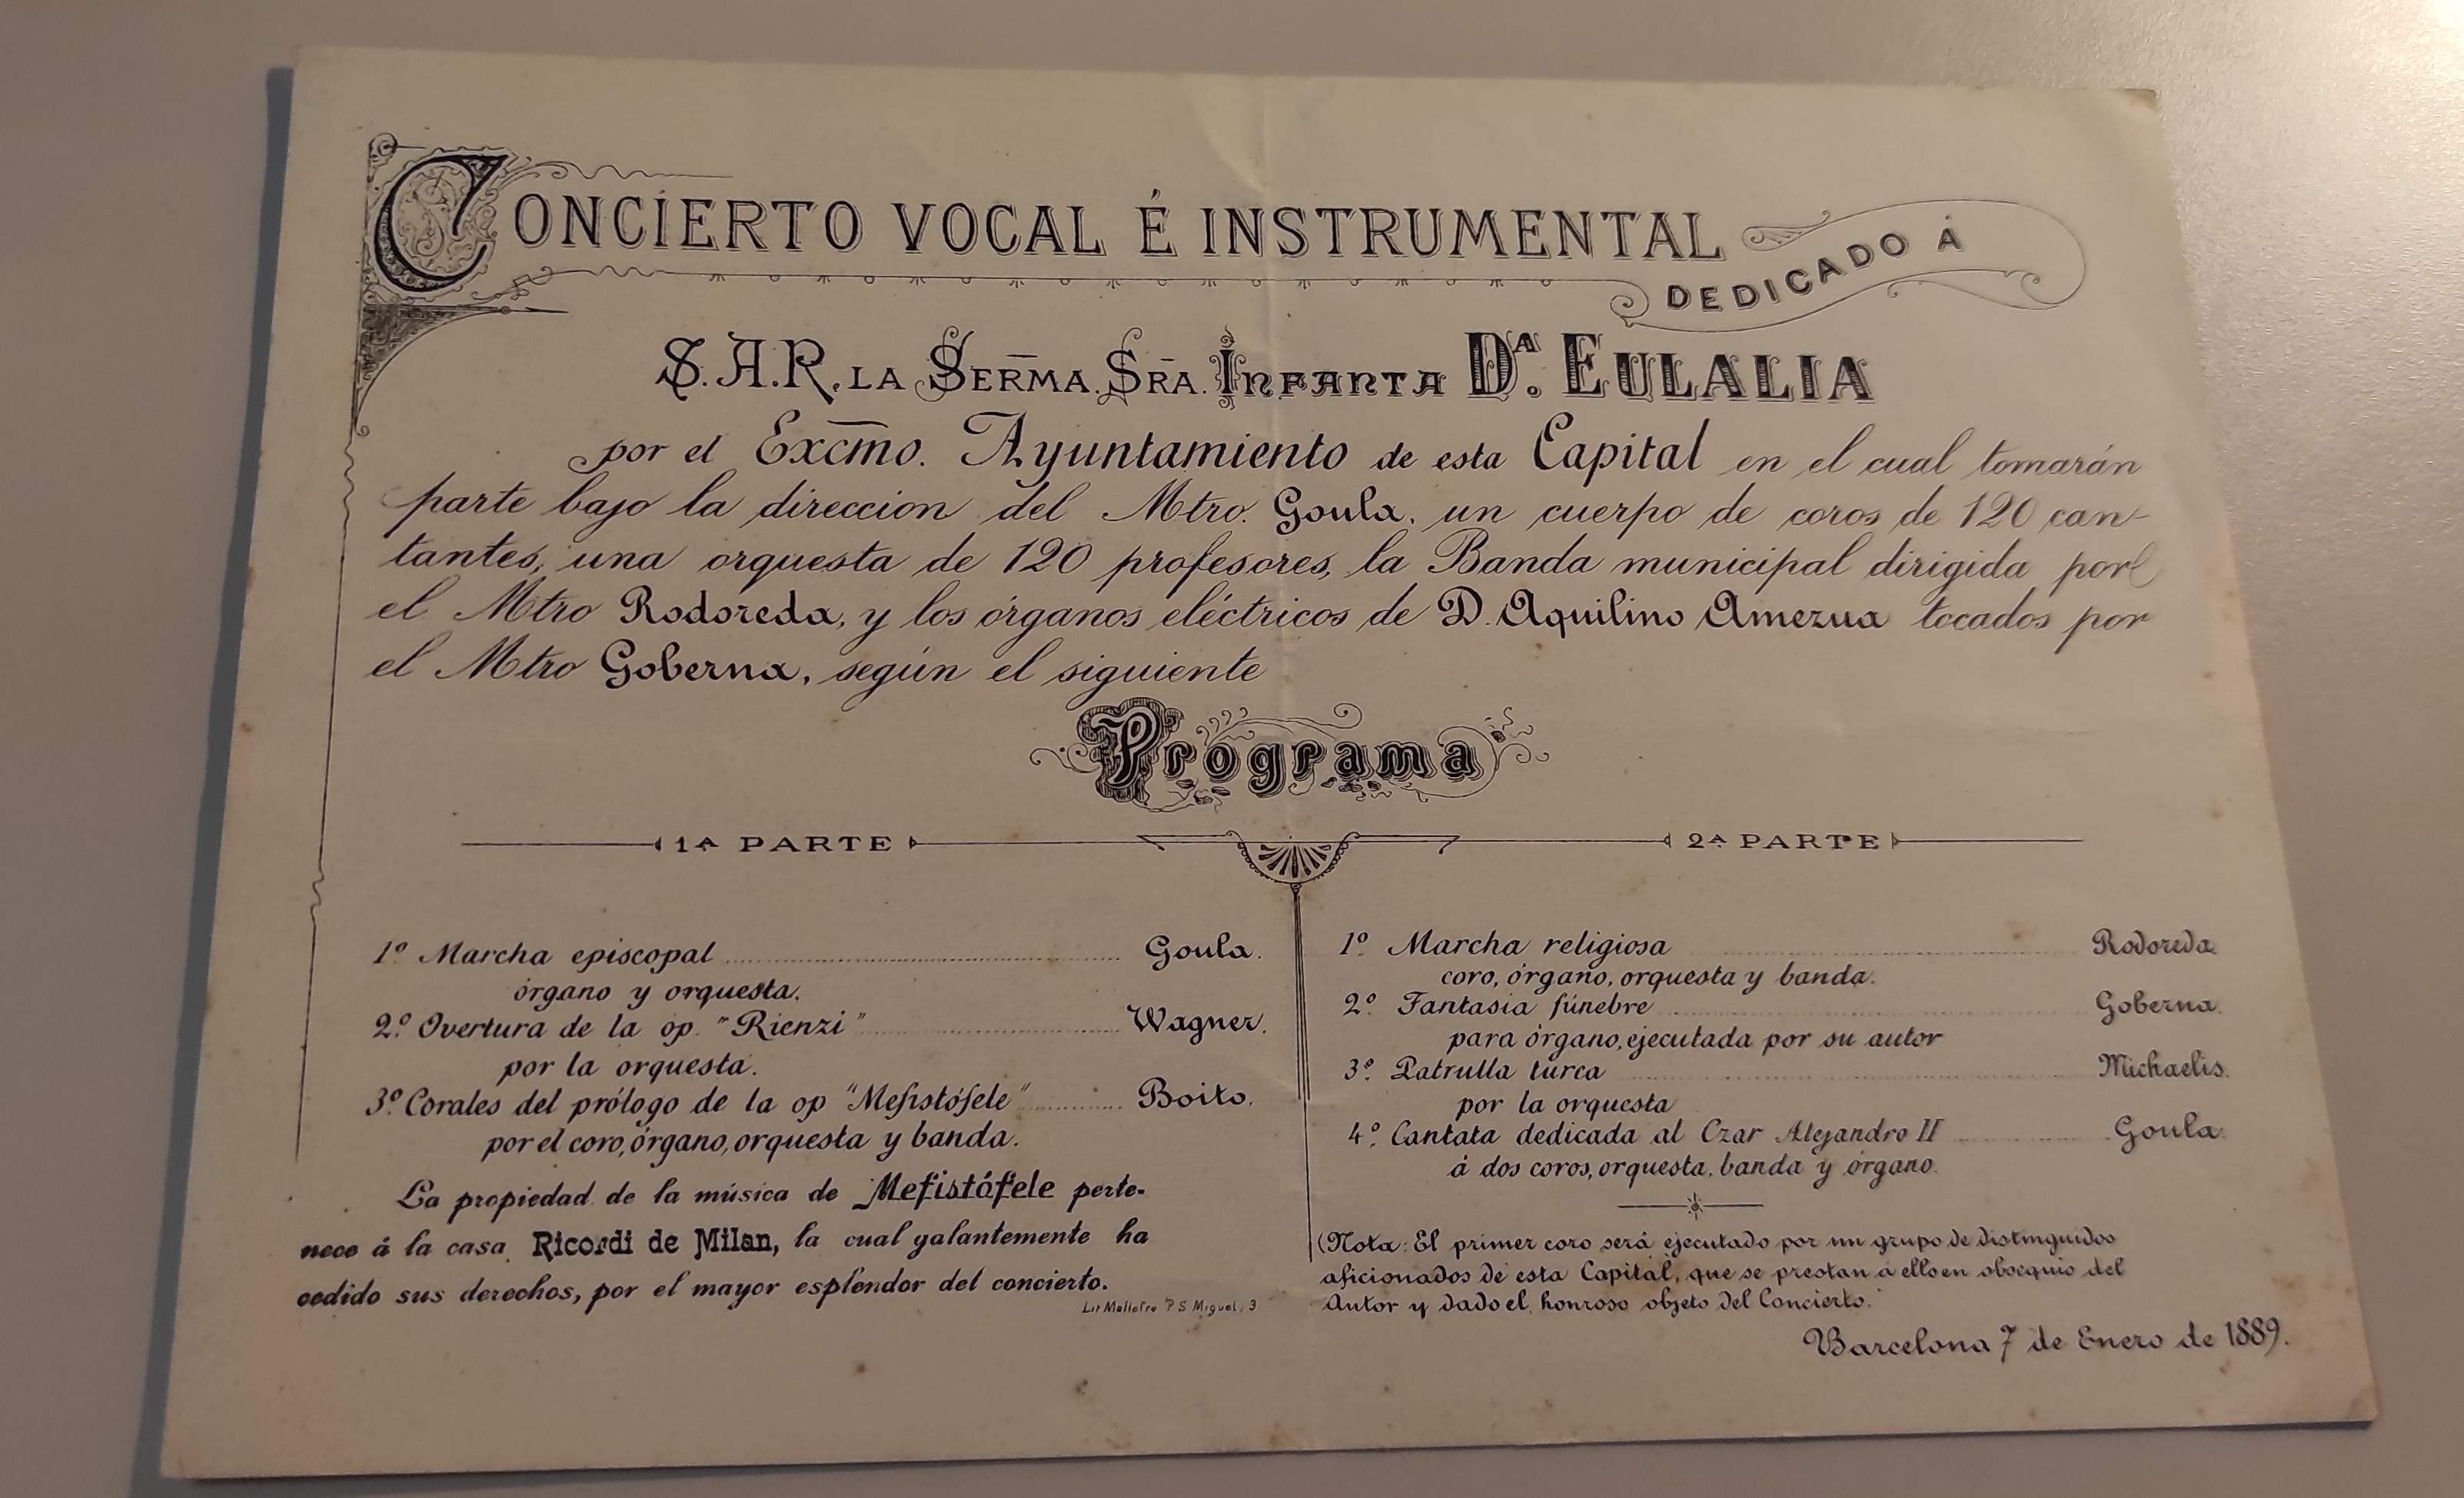 CONCIERTO VOCAL É INSTRUMENTAL
DEDICADO Á
S.A.R. LA SERMA. SRA. INFANTA Dª. EULALIA
por el Excmo. Ayuntamiento de esta Capital en el cual tomarán
parte bajo la direccion del Mtro. Goula, un cuerpo de coros de 120 can-
tantes, una orquesta de 120 profesores, la Banda municipal dirigida por
el Mtro Rodoreda, y los órganos eléctricos de D. Aquilino Amezua tocados por
el Mtro Goberna, según el siguiente
Programa
1ª PARTE
1º Marcha episcopal Goula.
órgano y orquesta.
2º. Overtura de la op. "Rienzi" Wagner.
por la orquesta.
3º. Corales del prólogo de la op "Mefistófele" Boito.
por el coro, órgano, orquesta y banda.
La propiedad de la música de Mefistófele perte-
nece á la casa Ricordi de Milan, la cual galantemente ha
cedido sus derechos, por el mayor esplendor del concierto.
Lit P S Miguel, 3
2ª PARTE
1º. Marcha religiosa Rodoreda.
coro, órgano, orquesta y banda.
2º. Fantasia fúnebre Goberna.
para órgano, ejecutada por su autor
3º. Patrulla turca Michaelis.
por la orquesta
4º. Cantata dedicada al Czar Alejandro II Goula.
á dos coros, orquesta, banda y órgano.
(Nota: El primer coro será ejecutado por un grupo de distinguidos
aficionados de esta Capital, que se prestan á ello en obsequio del
Autor y dado el honroso objeto del Concierto.
Barcelona 7 de Enero de 1889.